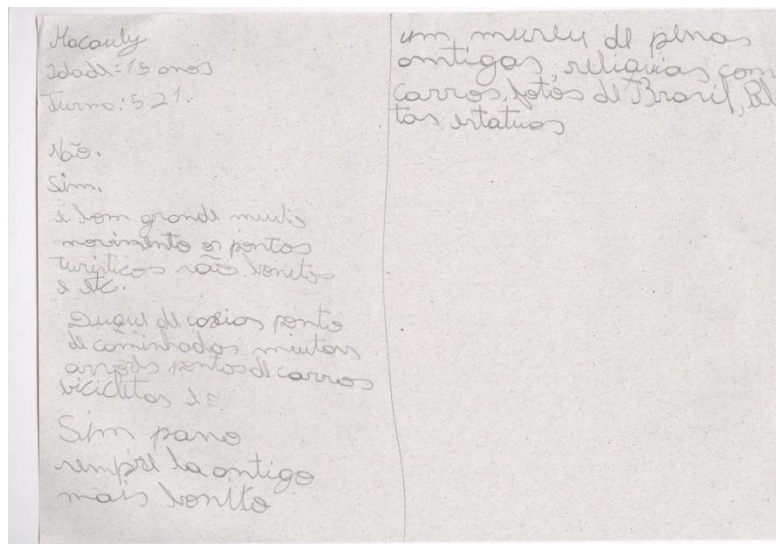 Macauly
Idade: 15 anos
Turma: 521.
Não.
Sim.
é bom grande muito
movimento os pontos
turísticos são bonitos
e etc.
Duque de caxias ponto
de caminhadas muitas
pontos de carros
bicicletas e
Sim passo
sempre la antigo
mais bonito
um museu de penas
antigas, reliquias com
carros, fotos de Brasil,
tas estatuas